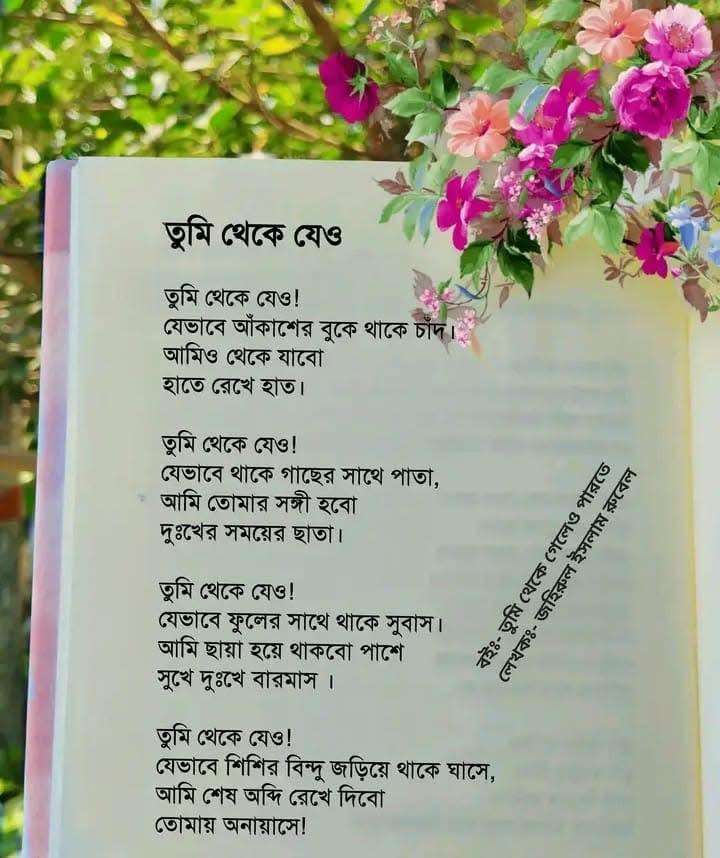 তুমি থেকে যেও
তুমি থেকে যেও!
যেভাবে আঁকাশের বুকে থাকে চাঁদ।
আমিও থেকে যাবো
হাতে রেখে হাত।
তুমি থেকে যেও!
যেভাবে থাকে গাছের সাথে পাতা,
আমি তোমার সঙ্গী হবো
দুঃখের সময়ের ছাতা।
তুমি থেকে যেও!
যেভাবে ফুলের সাথে থাকে সুবাস।
আমি ছায়া হয়ে থাকবো পাশে
সুখে দুঃখে বারমাস ।
তুমি থেকে যেও!
যেভাবে শিশির বিন্দু জড়িয়ে থাকে ঘাসে,
আমি শেষ অব্দি রেখে দিবো
তোমায় অনায়াসে!
বইঃ- তুমি থেকে গেলেও পারতে
লেখকঃ- জহিরুল ইসলাম রুবেল